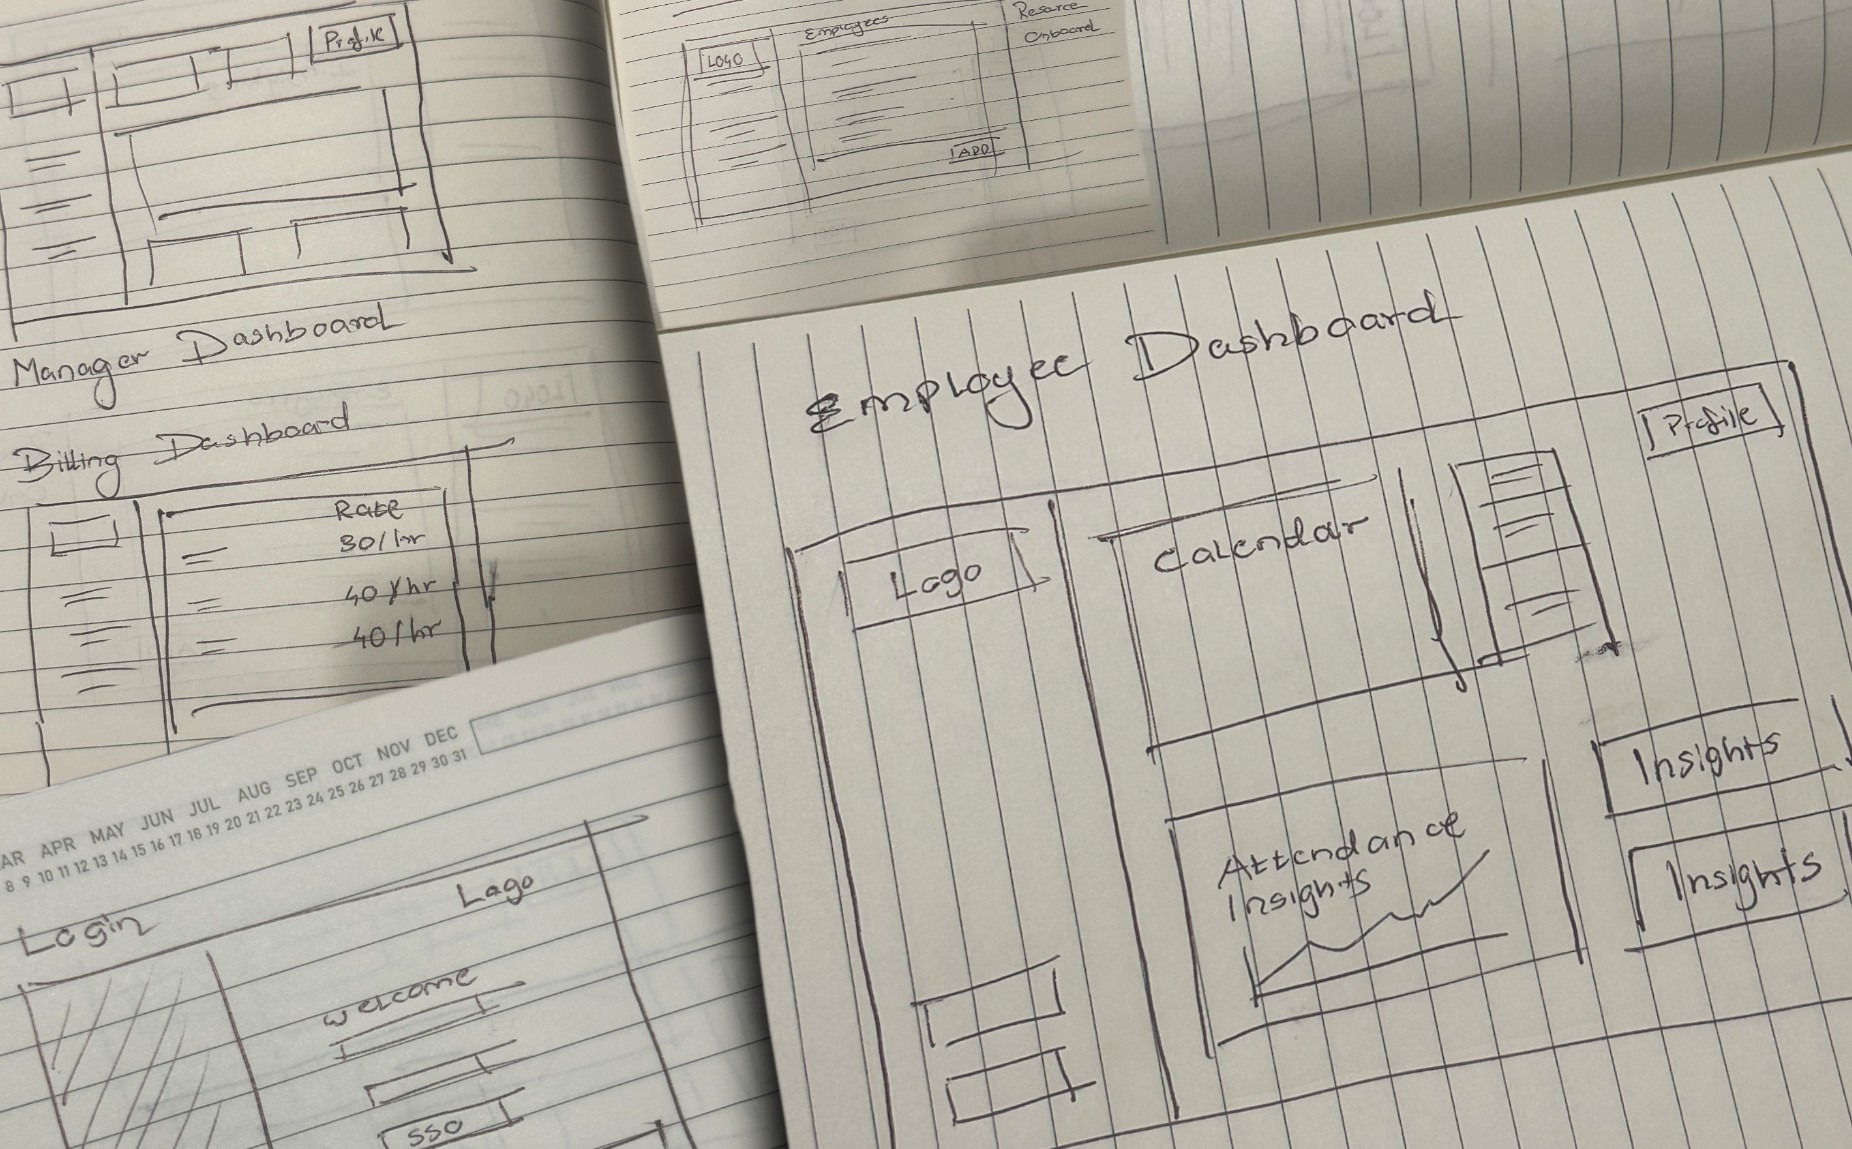 Profile
Manager Dashboard
Billing Dashboard
Rate
30/hr
40/hr
40/hr
Employees
Resorce
Onboard
LOGO
ADD
Employee Dashboard
Profile
Logo
Calendar
Insights
Attendance
Insights
Insights
APR MAY JUN JUL AUG SEP OCT NOV DEC
8 9 10 11 12 13 14 15 16 17 18 19 20 21 22 23 24 25 26 27 28 29 30 31
Login
Logo
Welcome
SSO